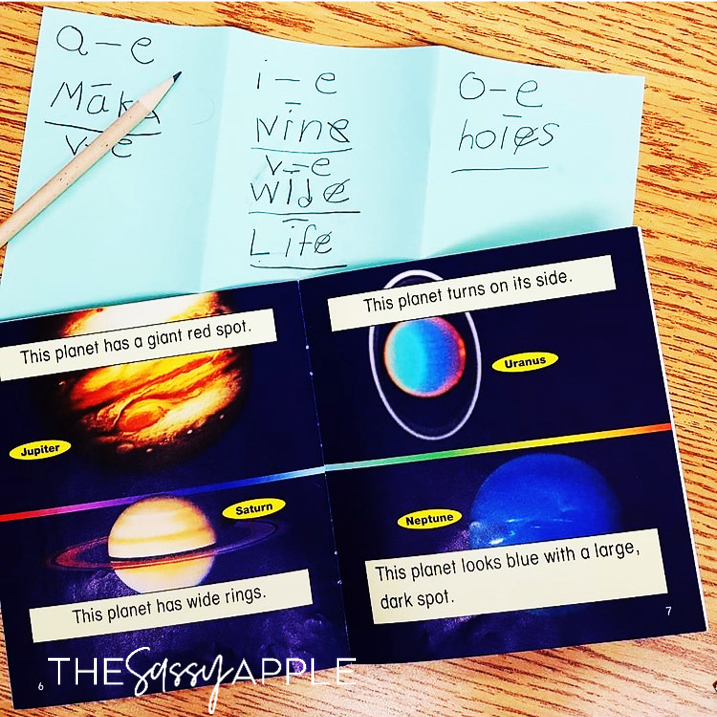 a-e
Māke
v-e
i-e
Nīne
v-e
wīde
Līfe
o-e
holes
This planet has a giant red spot.
Jupiter
Saturn
This planet has wide rings.
6
This planet turns on its side.
Uranus
Neptune
This planet looks blue with a large,
dark spot.
7
THE Sassy APPLE